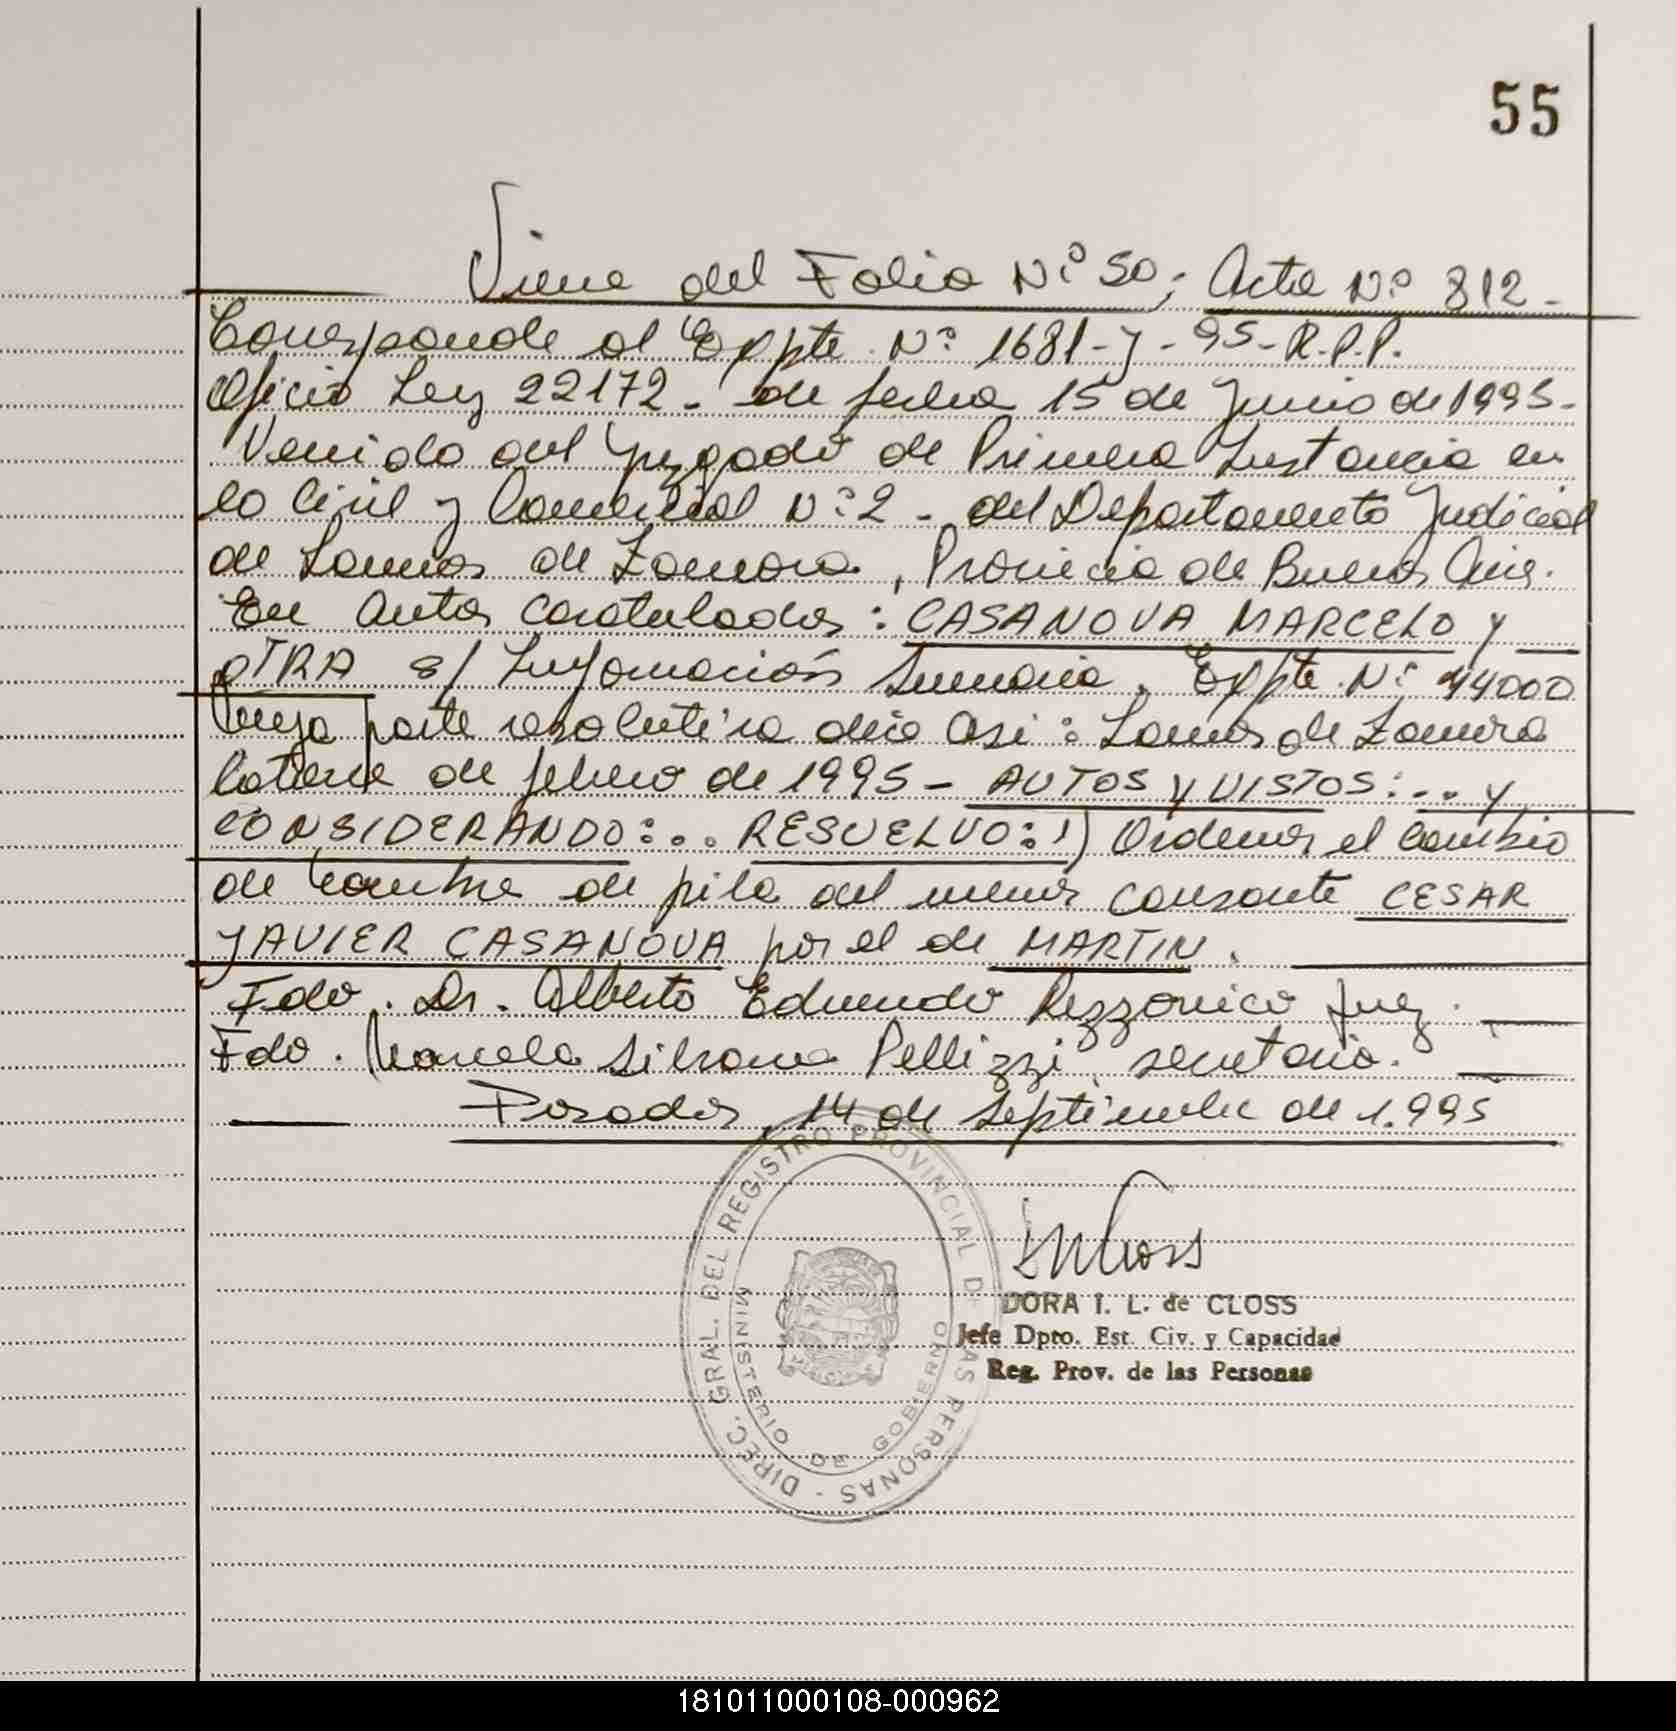 55
Viene del Folio Nº 50; Acta Nº 812-
Corresponde al Expte. Nº 1681-J-95-R.P.P.
Oficio Ley 22172- de fecha 15 de Junio de 1995-
Venido del Juzgado de Primera Instancia en
lo Civil y Comercial Nº 2- del Departamento Judicial
de Lomas de Zamora, Provincia de Buenos Aires.
En Autos Caratulados: CASANOVA MARCELO y
OTRA s/ Información Sumaria. Expte. Nº 44000
Cuya parte resolutiva dice Asi: Lomas de Zamora
Catorce de febrero de 1995- AUTOS y VISTOS:... y
CONSIDERANDO:... RESUELVO: 1) Ordenar el Cambio
de Nombre de pila del menor causante CESAR
JAVIER CASANOVA por el de MARTIN.
Fdo. Dr. Alberto Eduardo Rezzonico Juez.
Fdo. Marcela Silvana Pellizzi, secretaria.
Posadas, 14 de Septiembre de 1.995
DIREC. GRAL. DEL REGISTRO PROVINCIAL DE LAS PERSONAS -
MINISTERIO DE GOBIERNO
DORA I. L. de CLOSS
Jefe Dpto. Est. Civ. y Capacidad
Reg. Prov. de las Personas
181011000108-000962